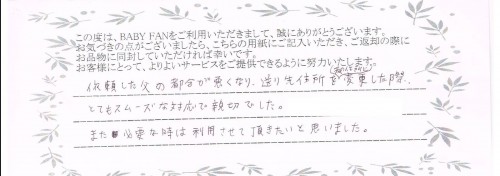 この度は、BABY FANをご利用いただきまして、誠にありがとうございます。
お気づきの点がございましたら、こちらの用紙にご記入いただき、ご返却の際に
お品物に同封していただければ幸いです。
お客様にとって、よりよいサービスをご提供できるように努力いたします。
依頼した父の都合が悪くなり、送り先住所を変更した際、
とてもスムーズな対応で親切でした。
また必要な時は利用させて頂きたいと思いました。